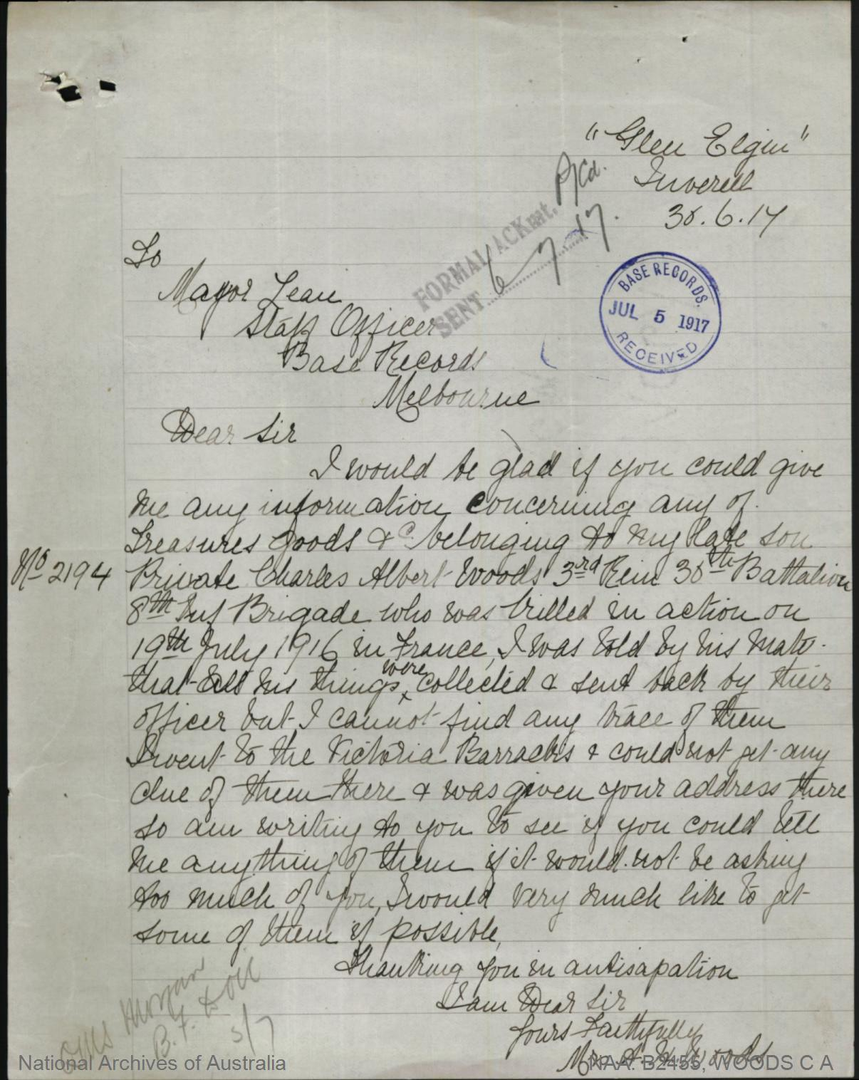 "Glen Elgin"
Inverell
30.6.17
P/Cd.
FORMAL ACKmt.
SENT 6-7-17.
BASE RECORDS.
JUL 5 1917
RECEIVED
To
Mayor Lean
Staff Officer
Base Records
Melbourne
Dear Sir
I would be glad if you could give
me any information concerning any of
treasures goods & c belonging to my late son
No 2194 Private Charles Albert Woods 3rd Rein 30th Battalion
8th Inf Brigade who was killed in action on
19th July 1916 in France, I was told by his mate
that all his things were collected & sent back by their
officer but I cannot find any trace of them
I went to the Victoria Barracks & could not get any
clue of them there & was given your address there
so am writing to you to see if you could tell
me anything of them if it would not be asking
too much of you, I would very much like to get
some of them if possible,
Thanking you in antisapation
I am Dear Sir
Yours Faithfully
Mrs A Woods
Morgan
B.F.
5/7
National Archives of Australia
NAA: B2455, WOODS C A